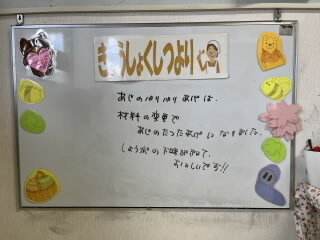 きゅうしょくしつより
あじのゆりゆりあげは、
材料の変更で
あじのたつたあげになりました。
しょうがの下味が出て、
おいしいです!!